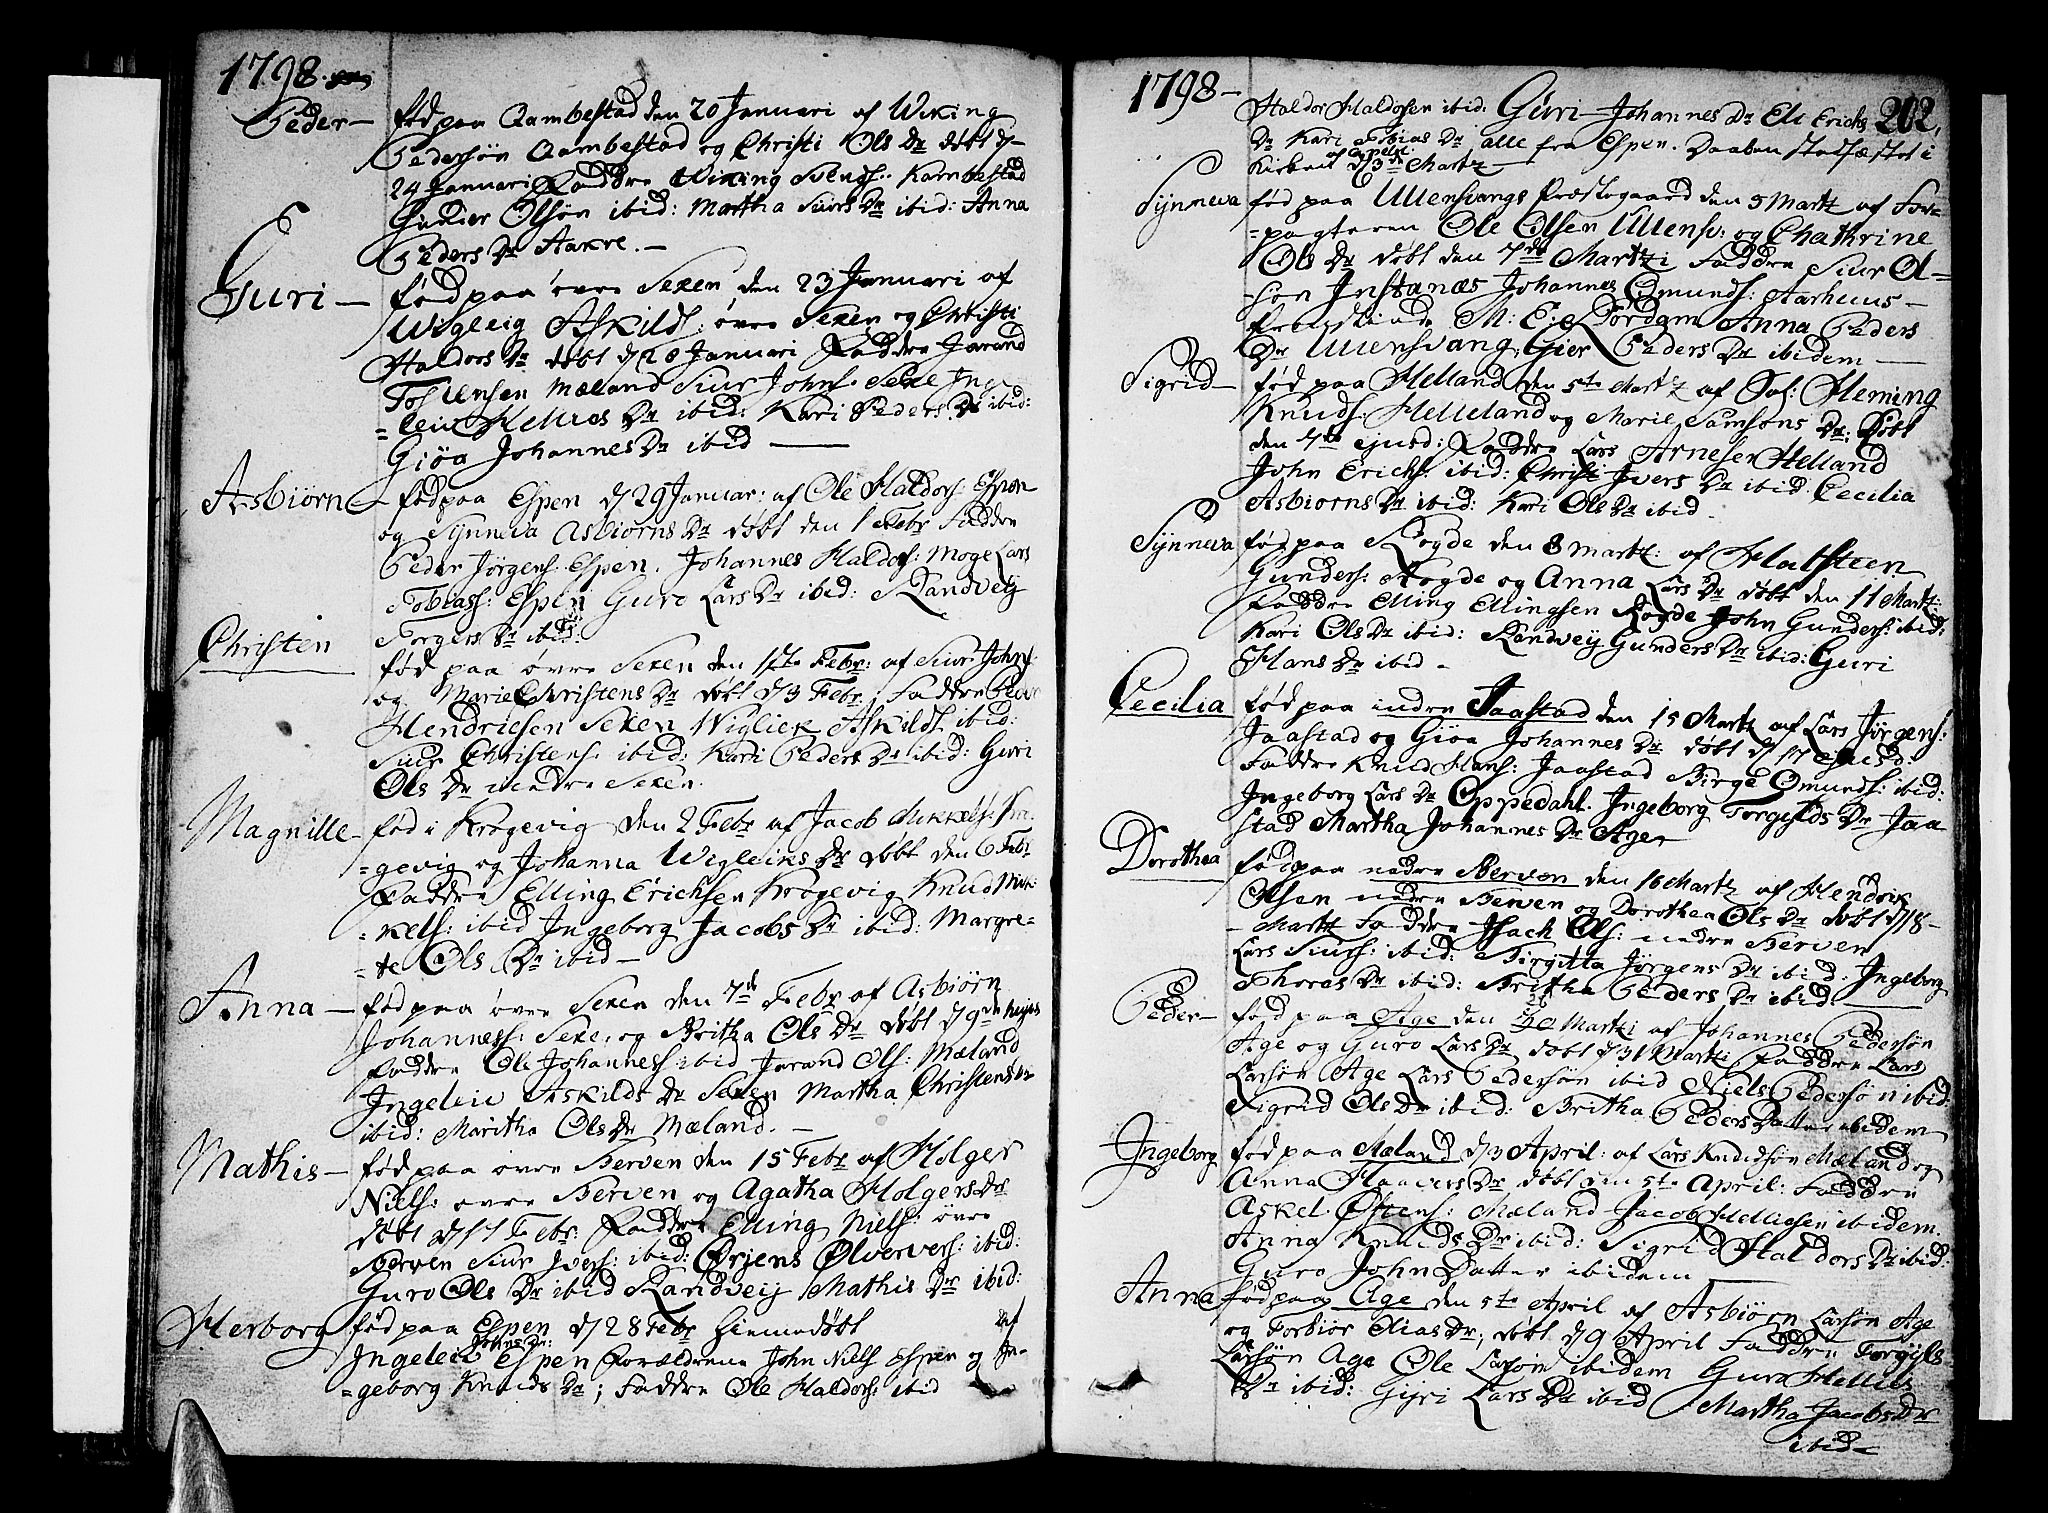 1798.
Peder— fød paa Qambestad den 20 Januari af Wiking
Pedersøn Qambestad og Christi Ols Dr døbt d
24 Januari Faddre Wiking Svends: Kambestad
Gunder Olsøn ibid: Martha Siurs Dr ibid: Anna
Peders Dr Aakre.—
Guri— fød paa øvre Sexen den 23 Januari af
Wigleig Askilds: øvre Sexen og Christi
Haldors Dr døbt d 28 Januari Faddre Jarand
Mæland Siur Johns: Sexe Inge
=leiv Hellies Dr ibid: Kari Peders Dr ibid:
Giøa Johannes Dr ibid—
Asbiørn— fød paa Espen d 29 Januar: af Ole Haldors: Espen
og Synneva Asbiørns Dr døbt den 1 Febr Faddre
Peder Jørgens: Espen. Johannes Haldors: Moge Lars
Tobiass: Espen Guro Lars Dr ibid: Randveij
Torgers Dr ibid:
Christen fød paa øvre Sexen den 1te Febr: af Siur Johns:
og Marie Christens Dr døbt d 3 Febr: Faddre Peder
Hendricsen Sexen Wigliek Askilds. ibid:
Siur Christens: ibid: Kari Peders Dr ibid: Guri
Ols Dr nedre Sexen.
Magnille— fød i Krogevig den 2 Febr af Jacob Mikkels: Kro-
=gevig og Johanna Wigleiks Dr døbt den 6 Febr
Faddre Elling Erichsen Krogevig Knud Mik-
=kels: ibid Ingeborg Jacobs Dr ibid: Margre-
=te Ols Dr ibid—
Anna— fød paa øvre Sexen den 7de Febr af Asbiørn
Johanness: Sexe, og Britha Ols Dr døbt d 9de
Faddre Ole Johanness ibid Jarand Ols: Mæland
Ingeleiv Askilds Dr Sexen Martha Christens Dr
ibid: Maritha Ols Dr Mæland.—
Mathis— fød paa øvre Berven den 15 Febr af Holger
Niels: øvre Berven og Agatha Holgers Dr
døbt d 17 Febr: Faddre Elling Niels: øvre
Berven Siur Ivers: ibid: Ørjens Ølververs: ibid:
Guro Ols Dr ibid Randveij Mathis Dr ibid:
Herborg fød paa Espen d 28 Febr hiemmedøbt af
Ingeleiv Johns Dr: Espen Forældrene John Niels Espen og In-
=geborg Knuds Dr; Faddre Ole Haldors: ibid
1798— 202.
Haldor Haldorsen ibid: Guri Johannes Dr Eli Erichs
Dr Kari Tobias Dr alle fra Espen. Daaben stadfæstet i
Kirken d 3de Martz—
Synneva fød paa Ullensvangs Præstegaard den 5 Martz af For-
=pagteren Ole Olsen Ullensv: og Chathrine
Ols Dr døbt den 7de Martzi Faddre Siur Ol-
=søn Instanæs Johannes Omunds: Aarhuus—
M: Eie Anna Peders
Dr Ullensvang, Gier Peders Dr ibidem—
Sigrid— fød paa Helland den 5te Martz af Sol: Fleming
Knuds: Helleland og Marie Samsons Dr; døbt
den 7te ejusd: Faddre Lars Arnesen Helland
John Erichs: ibid: Christi Ivers Dr ibid: Cecilia
Asbiorns Dr ibid: Kari Ols Dr ibid—
Synneva fød paa Rogde den 8 Martz: af Halsteen
Gunders: Rogde og Anna Lars Dr døbt den 11 Martz:
Faddre Elling Ellingsen Rogde John Gunders: ibid:
Kari Ols Dr ibid: Randveij Gunders Dr ibid: Guri
Hans Dr ibid—
Cecilia fød paa indre Jaastad den 15 Martz af Lars Jørgens:
Jaastad og Gioa Johannes Dr døbt d 17 ejusd:
Faddre Knud Hans: Jaastad Birge Omunds: ibid:
Ingeborg Lars Dr Oppedahl. Ingeborg Torgilds Dr Jaa
stad Martha Johannes Dr Age—
Dorothea fød paa nedre Berven den 16 Martz af Hendrik
Olsen nedre Berven og Dorothea Ols Dr døbt d 18—
Martz Faddre Isach Ols: nedre Berven
Lars Siurs: ibid: Birgitta Jørgens Dr ibid: Ingeborg
Thores Dr ibid: Britha Peders Dr ibid:
Peder— fød paa Age den Martzi af Johannes Pedersøn
Age og Guro Lars Dr døbt d 31 Martzi Faddre Lars
Larsøn Age Lars Pedersøn ibid Niels Pedersøn ibid:
Sigrid Ols Dr ibid: Britha Peders Datter ibidem
Ingeborg fød paa Mæland d 3 April: af Lars Knudsøn Mæland og
Anna Haavers Dr døbt den 5te April: Faddre
Askel Østens: Mæland Jacob Helliesen ibidem:
Anna Knuds Dr ibid: Sigrid Haldors Dr ibid:
Guro John Datter ibidem
Anna fød paa Age den 5te April af Asbiørn Larsøn Age
og Torbiør Elias Dr; døbt d 9 April Faddre Torgils
Larsøn Age Ole Larsøn ibidem Guro Hellies
Dr ibid: Gyri Lars Dr ibid Martha Jacobs Dr
ibid—